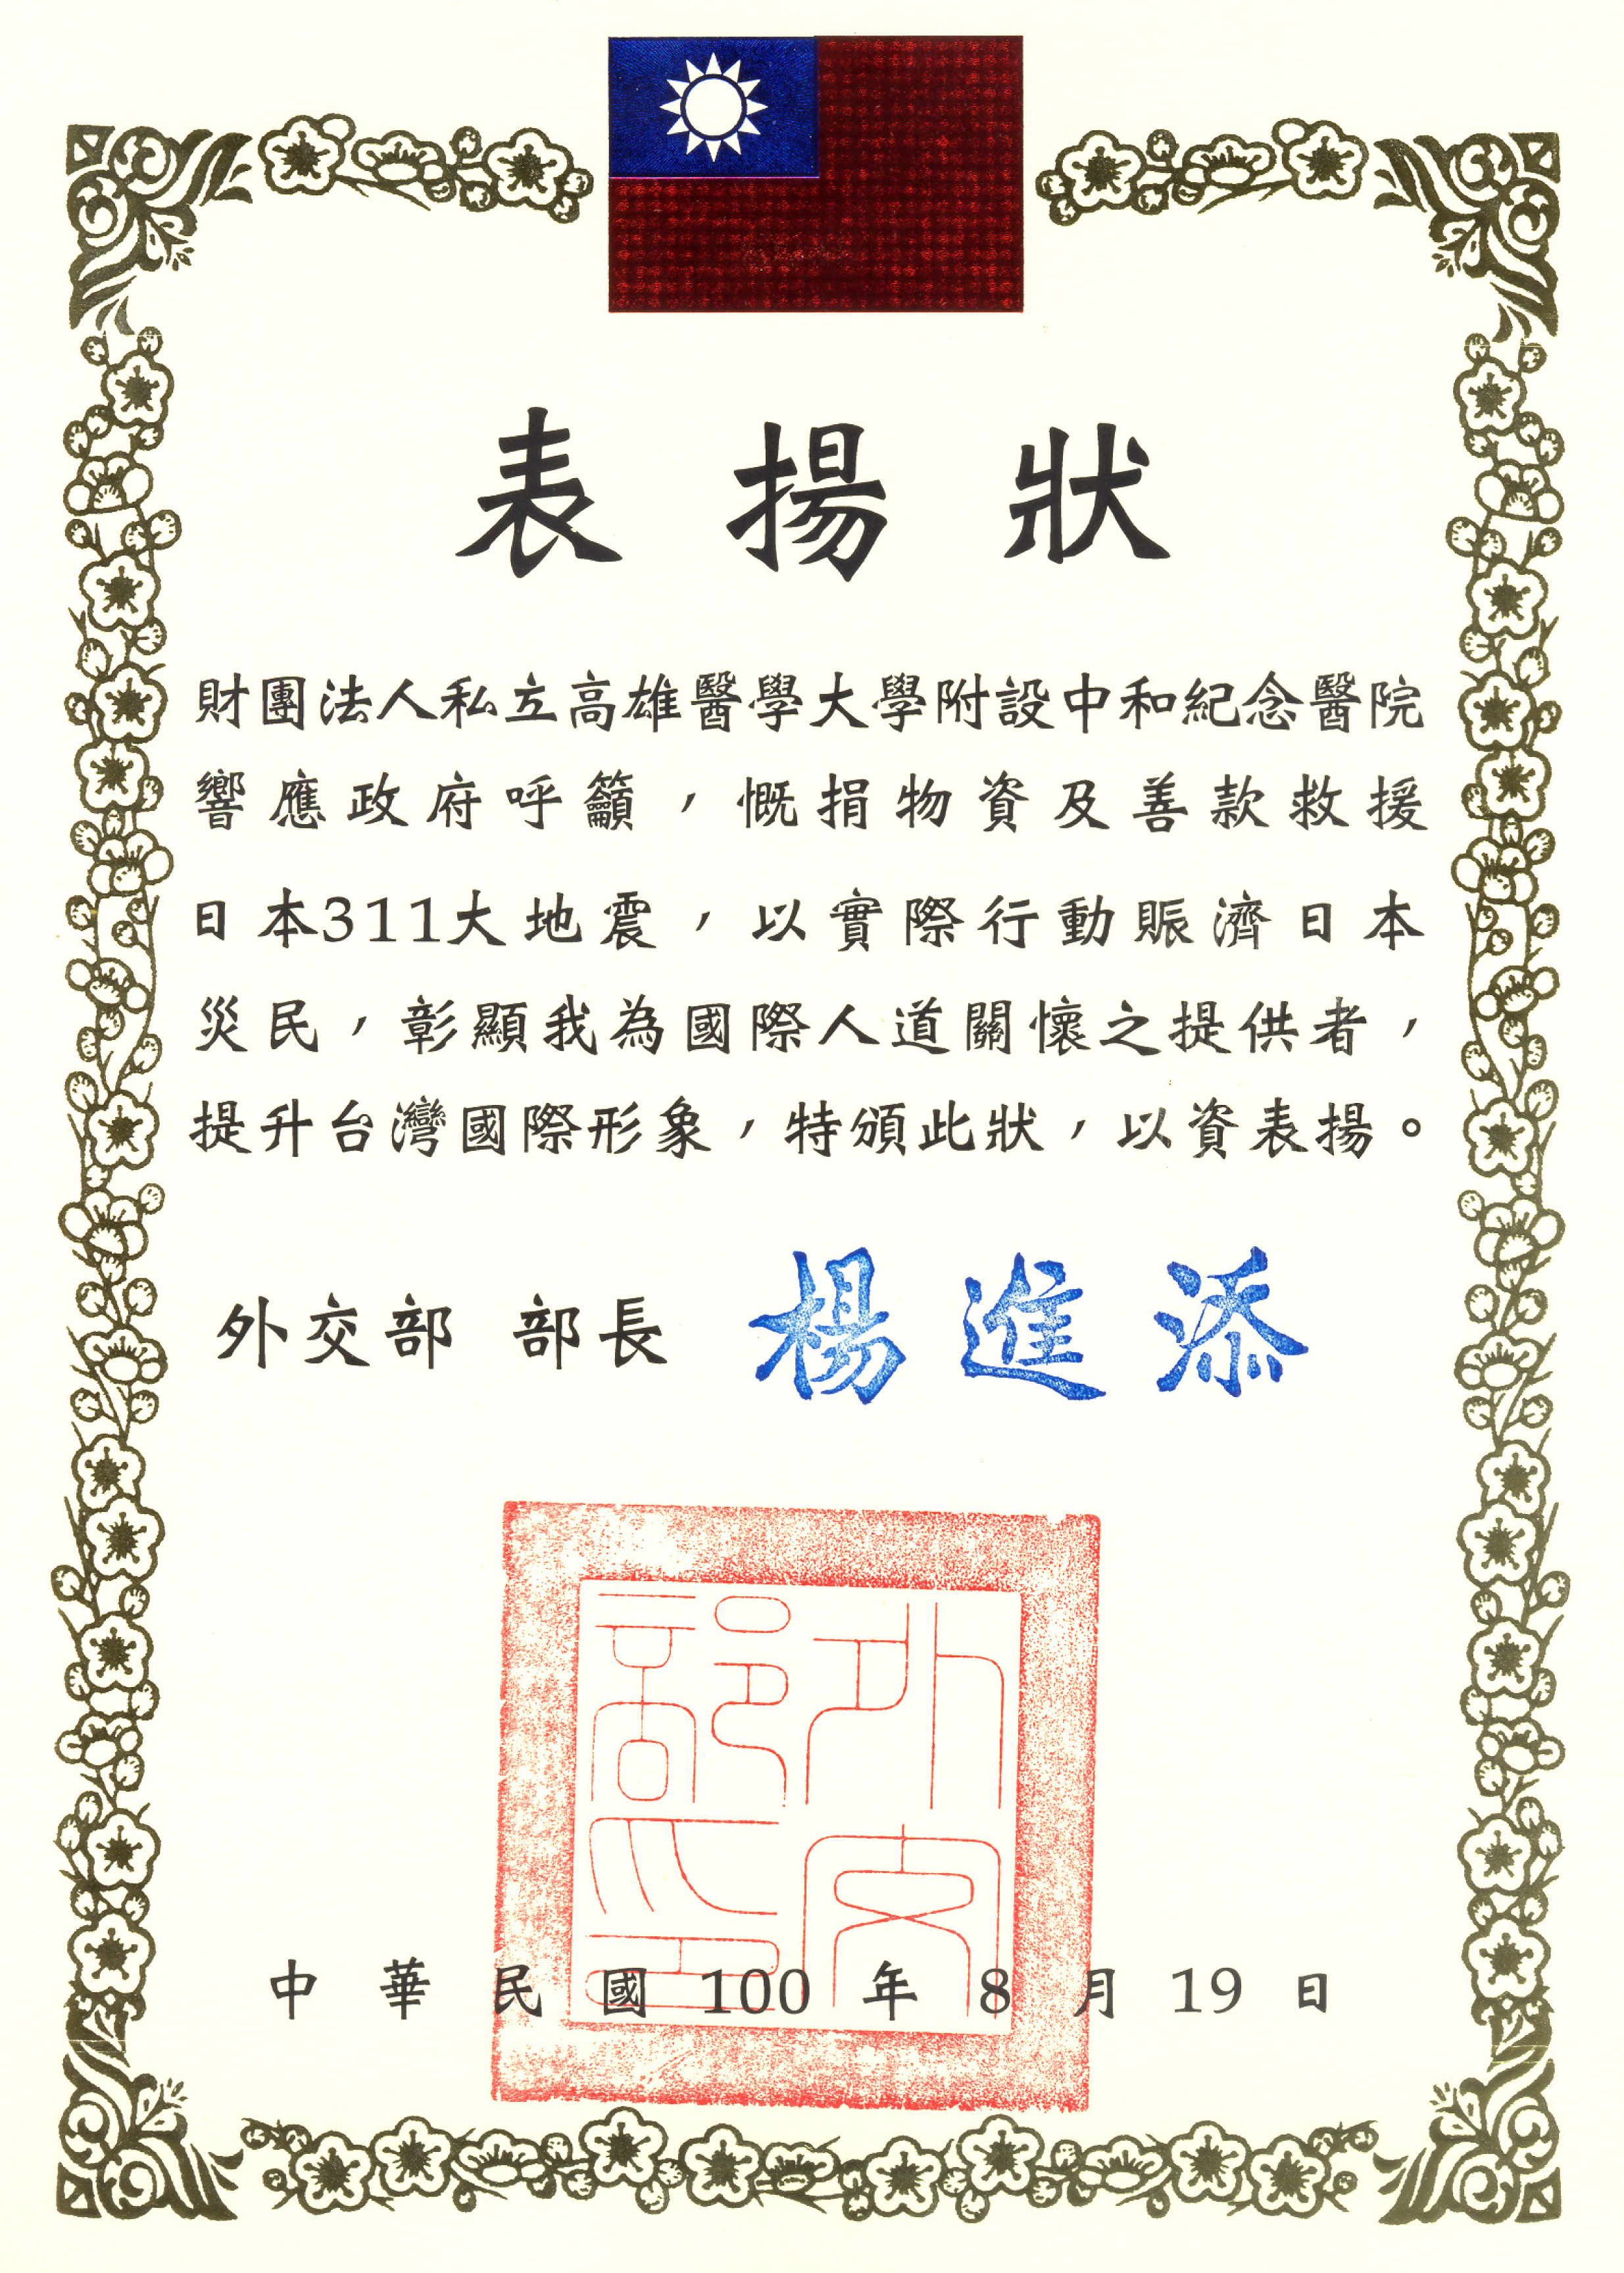 表揚狀
財團法人私立高雄醫學大學附設中和紀念醫院
響應政府呼籲，慨捐物資及善款救援
日本311大地震，以實際行動賑濟日本
災民，彰顯我為國際人道關懷之提供者，
提升台灣國際形象，特頒此狀，以資表揚。
外交部 部長 楊進添
外交部之印
中華民國100年8月19日